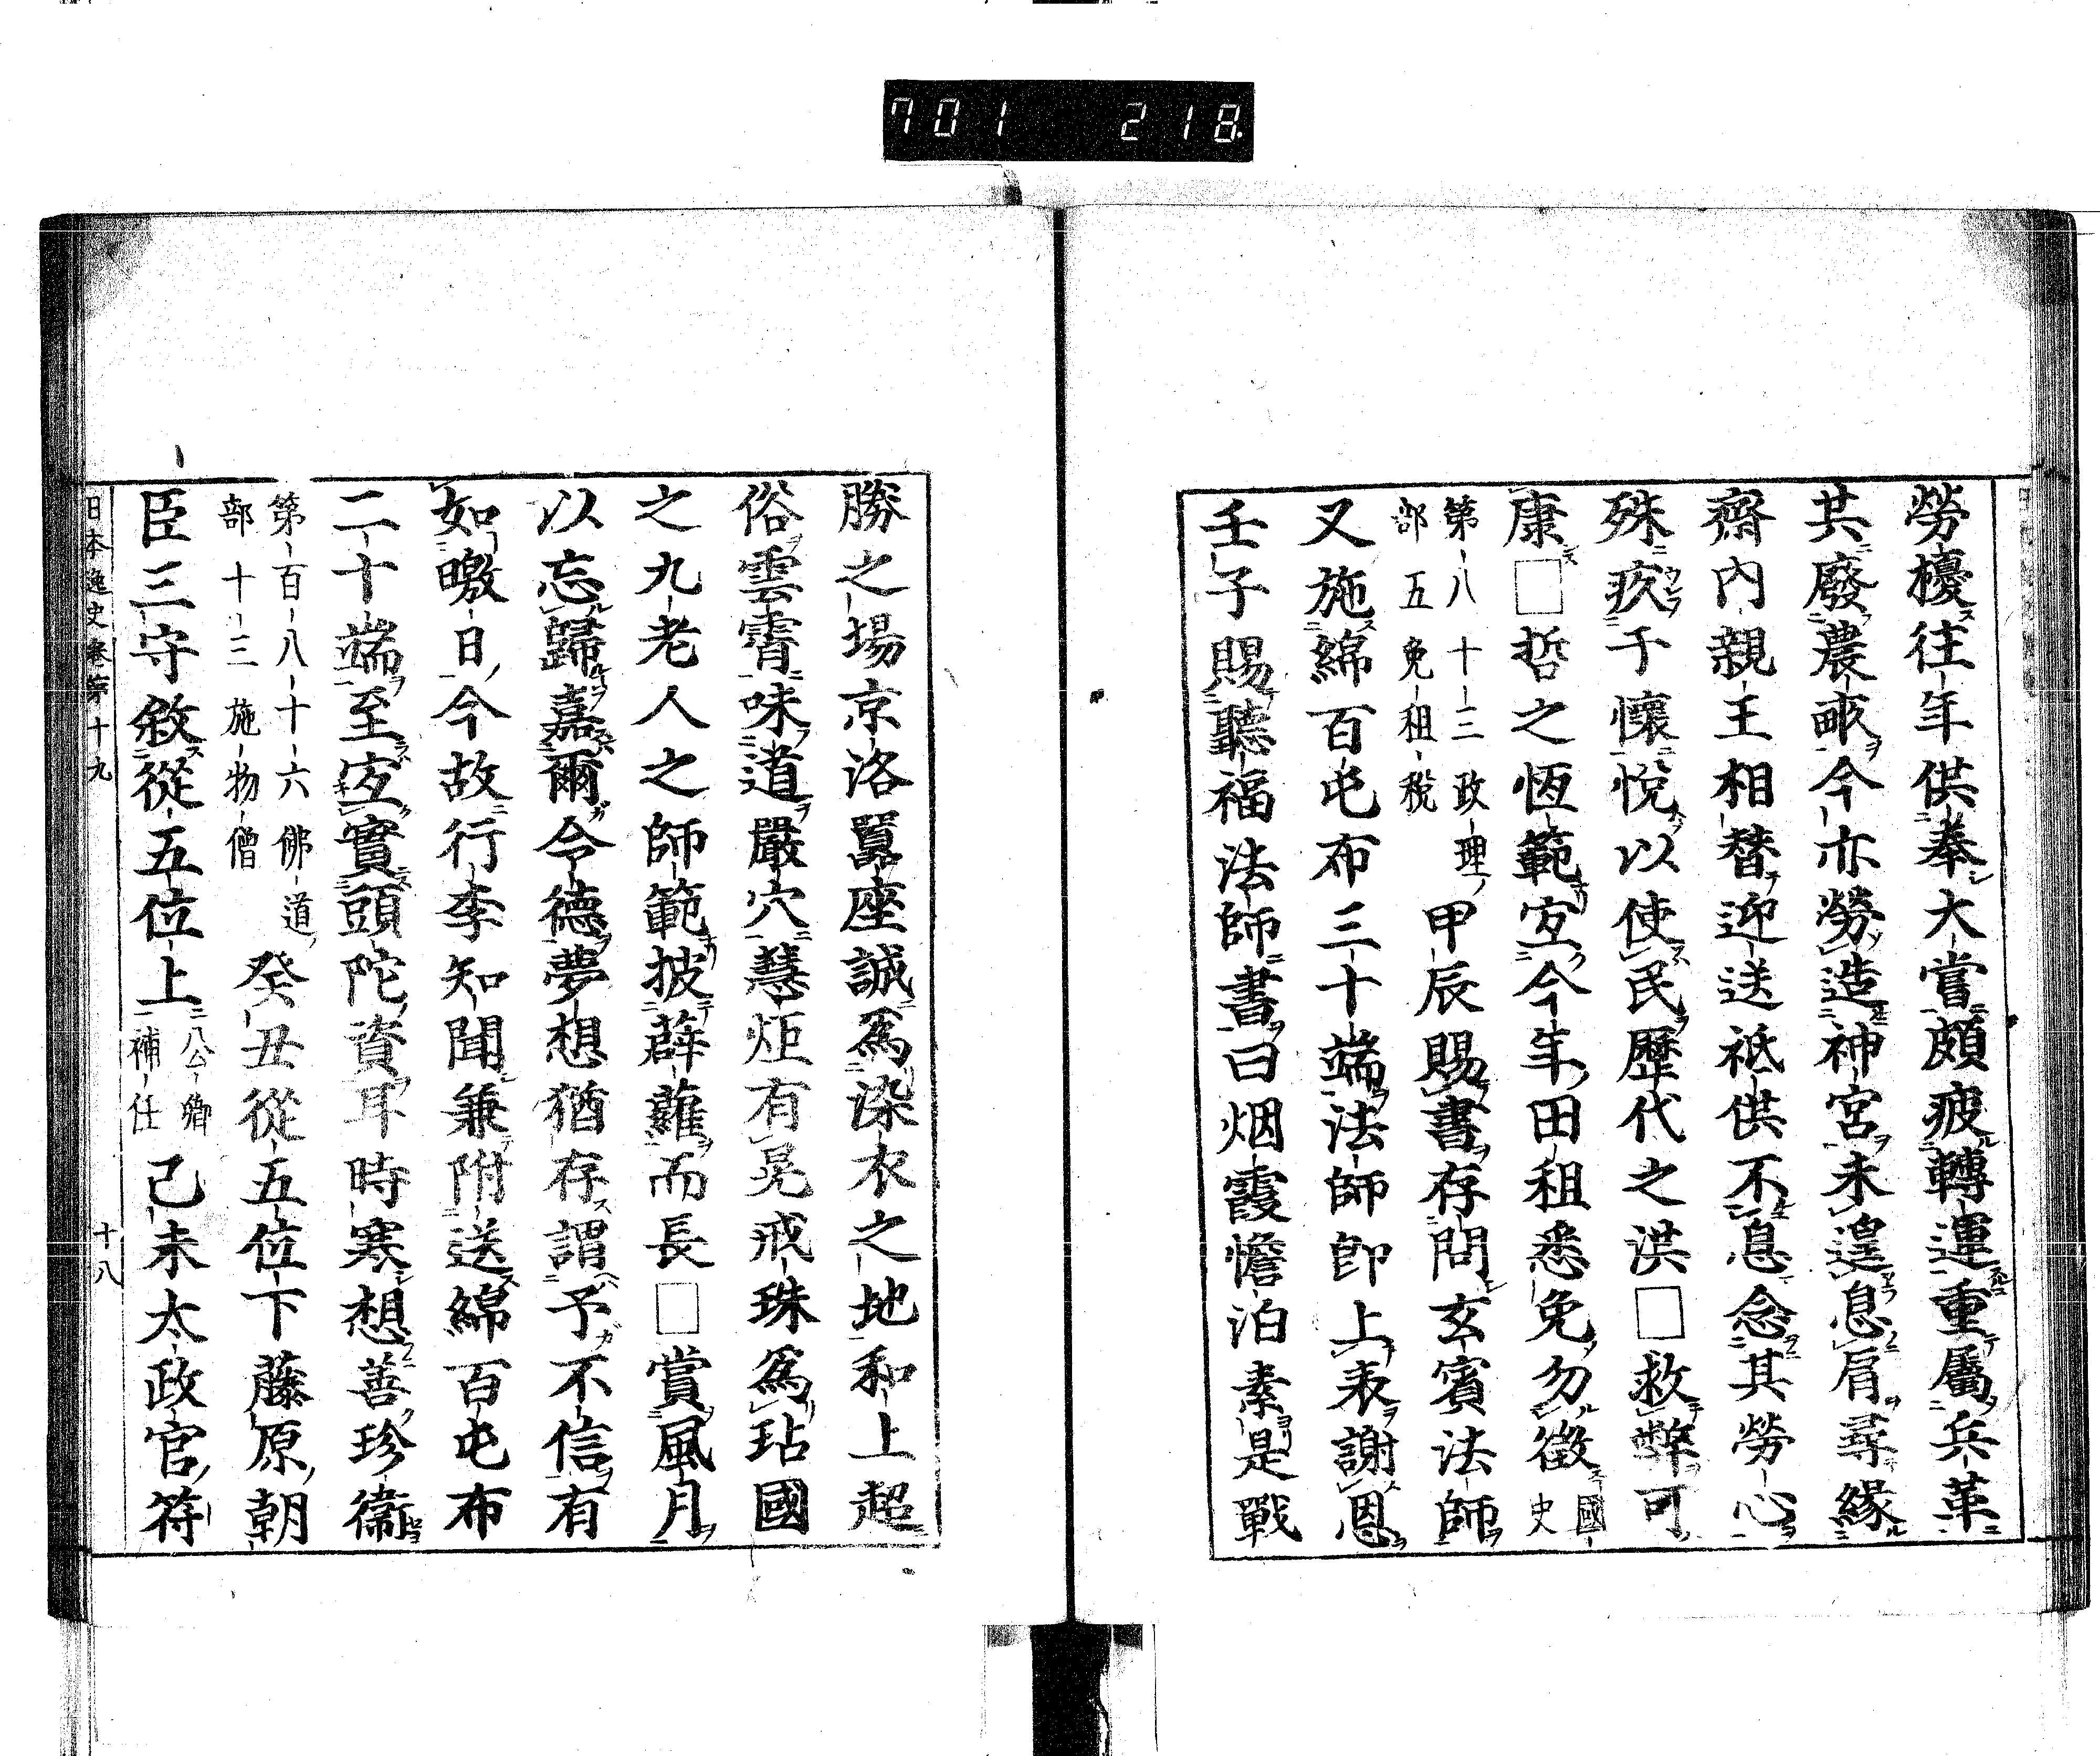 701 218.
勞擾往年供奉大嘗頗疲轉運重屬兵革
其廢農畝今亦勞造神宮未遑息肩尋緣
齋內親王相替迎送祗供不息念其勞心
殊疚于懷悅以使民歷代之洪□救弊可
康□哲之恆範宜今年田租悉免勿徵國史
第八十三政理
部五免租税
甲辰賜書存問玄賓法師
又施綿百屯布三十端法師即上表謝恩
壬子賜聽福法師書曰烟霞憺泊素是戰
勝之場京洛囂座誠爲染衣之地和上超
俗雲霄味道巖穴慧炬有晃戒珠爲玷國
之九老人之師範披薜蘿而長□賞風月
以忘歸嘉爾令德夢想猶存謂予不信有
如曒日今故行李知聞兼附送綿百屯布
二十端至宜實頭陀資耳時寒想善珍衞
第百八十六佛道
部十三施物僧
癸丑從五位下藤原朝
臣三守敘從五位上公卿補任己未太政官符
日本逸史卷第十九
十八